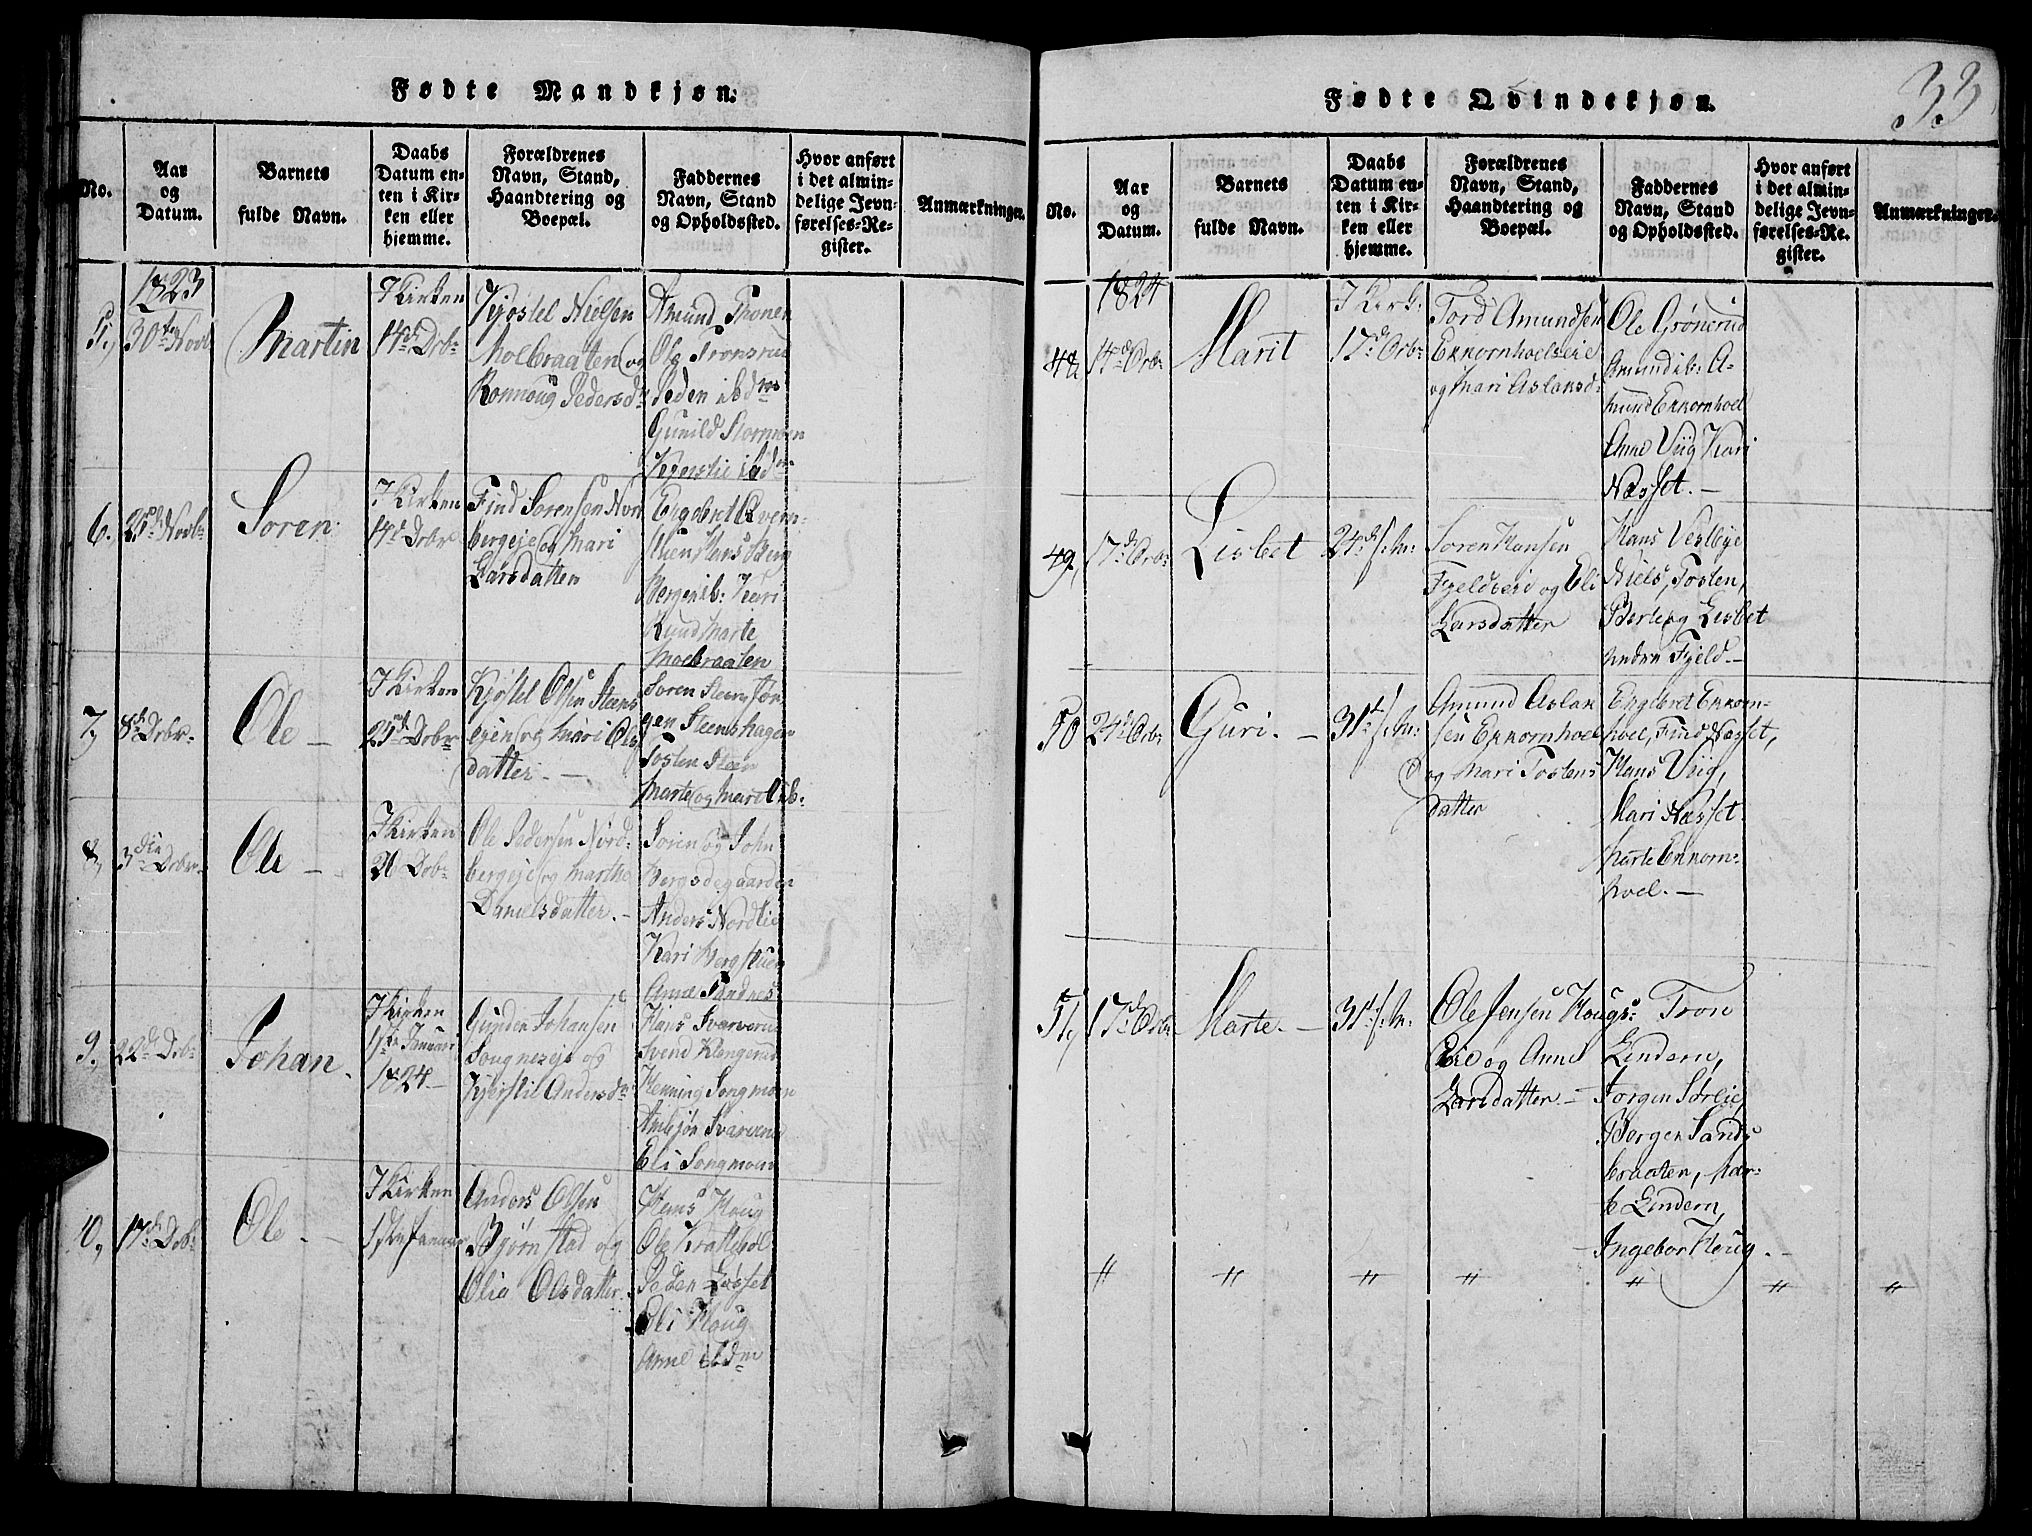 Fødte Mandkjøn.
No.
Aar
og
Datum.
Barnets
fulde Navn.
Daabs
Datum en-
ten i Kir-
ken eller
hjemme.
Forældrenes
Navn, Stand,
Haandtering og
Boepæl.
Faddernes
Navn, Stand
og Opholdssted.
Hvor anført
i det almin-
delige Jevn-
førelses-Re-
gister.
Anmærkninger.
1823
5,
30te Novbr
Martin
I Kirken
14d Dcbr
Kjøstel Nielsen
Molbraaten og
Ronnoug Pedersd
Amund Thonen
Ole Tronsrud
Peder ibdm
Gunild Stormoen
Kjerstie ibdm
6.
25d Novbr
Soren
I Kirken
14d Dcbr
Find Sorensen Nor
bergeje og Mari
Larsdatter
Engebret Qvern-
stuen Hens Berg
Bergenib: Kari
Ruud Marte
Molbraaten
7,
8d Dcbr
Ole
I Kirken
25d Dcbr
Kjøstel Olsen Steens
ejen og Mari Ols
datter.
Soren Steen Jør
gen Steenshagen
Tosten Steen
Marte og Mari ib:
8,
3die Dcbr
Ole
I Kirken
26 Dcb
Ole Pedersen Nord-
bergeje og Marthe
Danielsdatter.
Soren og John
Bergsdegaarden
Anders Nordlie
Kari Bergstuen
Anne Sandnes
9.
22d Dcb
Johan.
I Kirken
1ste Januari
1824
Gunder Johansen
Songneeje og
Kjerstil Andersd
Hans Svarverud
Svend Klengerud
Henning Songmoen
Ambjør Svarverud
Eli Songmoen
10,
17d Dcb
Ole
I Kirken
1ste Januar
Anders Olsen
Bjørnstad og
Olia Olsdatter.
Hans Houg
Ole Krattebøl
Peder Løsset
Eli Houg
Anne ibdm
Fødte Qvindekjøn.
33
No.
Aar
og
Datum.
Barnets
fulde Navn.
Daabs
Datum en-
ten i Kir-
ken eller
hjemme.
Forældrenes
Navn, Stand,
Haandtering og
Boepæl.
Faddernes
Navn, Stand
og Opholdssted.
Hvor anført
i det almin-
delige Jevn-
førelses-Re-
gister.
Anmærkninger.
1824
48
14d Octbr
Marit
I Kirk:
17d Octbr
Tord Amundsen
Ekkornhoelseie
og Mari Aslaksd:
Ole Grønerud
Amund ib: A-
mund Ekkornhoel
Anne Viig Kari
Næsset.
49,
17d Octbr
Lisbet
24d s: M:
Soren Hansen
Fjeldseie og Eli
Larsdatter
Hans Vesleye
Niels, Tosten,
Berte og Lisbet
nedre Fjeld.
50
24d Octbr
Guri.
31t s: M:
Amund Aslak
sen Ekkornhoel
og Mari Tostens
datter
Engebret Ekkorn-
hoel, Find Næsset,
Hans Viig,
Mari Næsset
Marte Ekkorn-
hoel.
51,
17d Octbr
Marte.
31t s: M:
Ole Jensen Hougs-
eie og Anne
Larsdatter.
Tron
Lindern,
Jorgen Sørlie,
Borger Sands
braaten, Mar-
te Lindern,
Ingebor Houg.
" " " " " " "